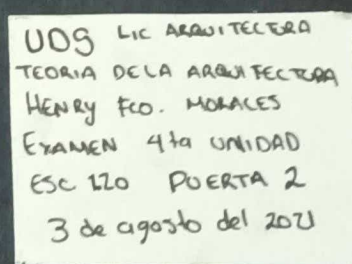 UDS LIC ARQUITECTURA
TEORIA DE LA ARQUITECTURA
HENRY FCO. MORALES
EXAMEN 4ta UNIDAD
ESC 1:20 PUERTA 2
3 de agosto del 2021